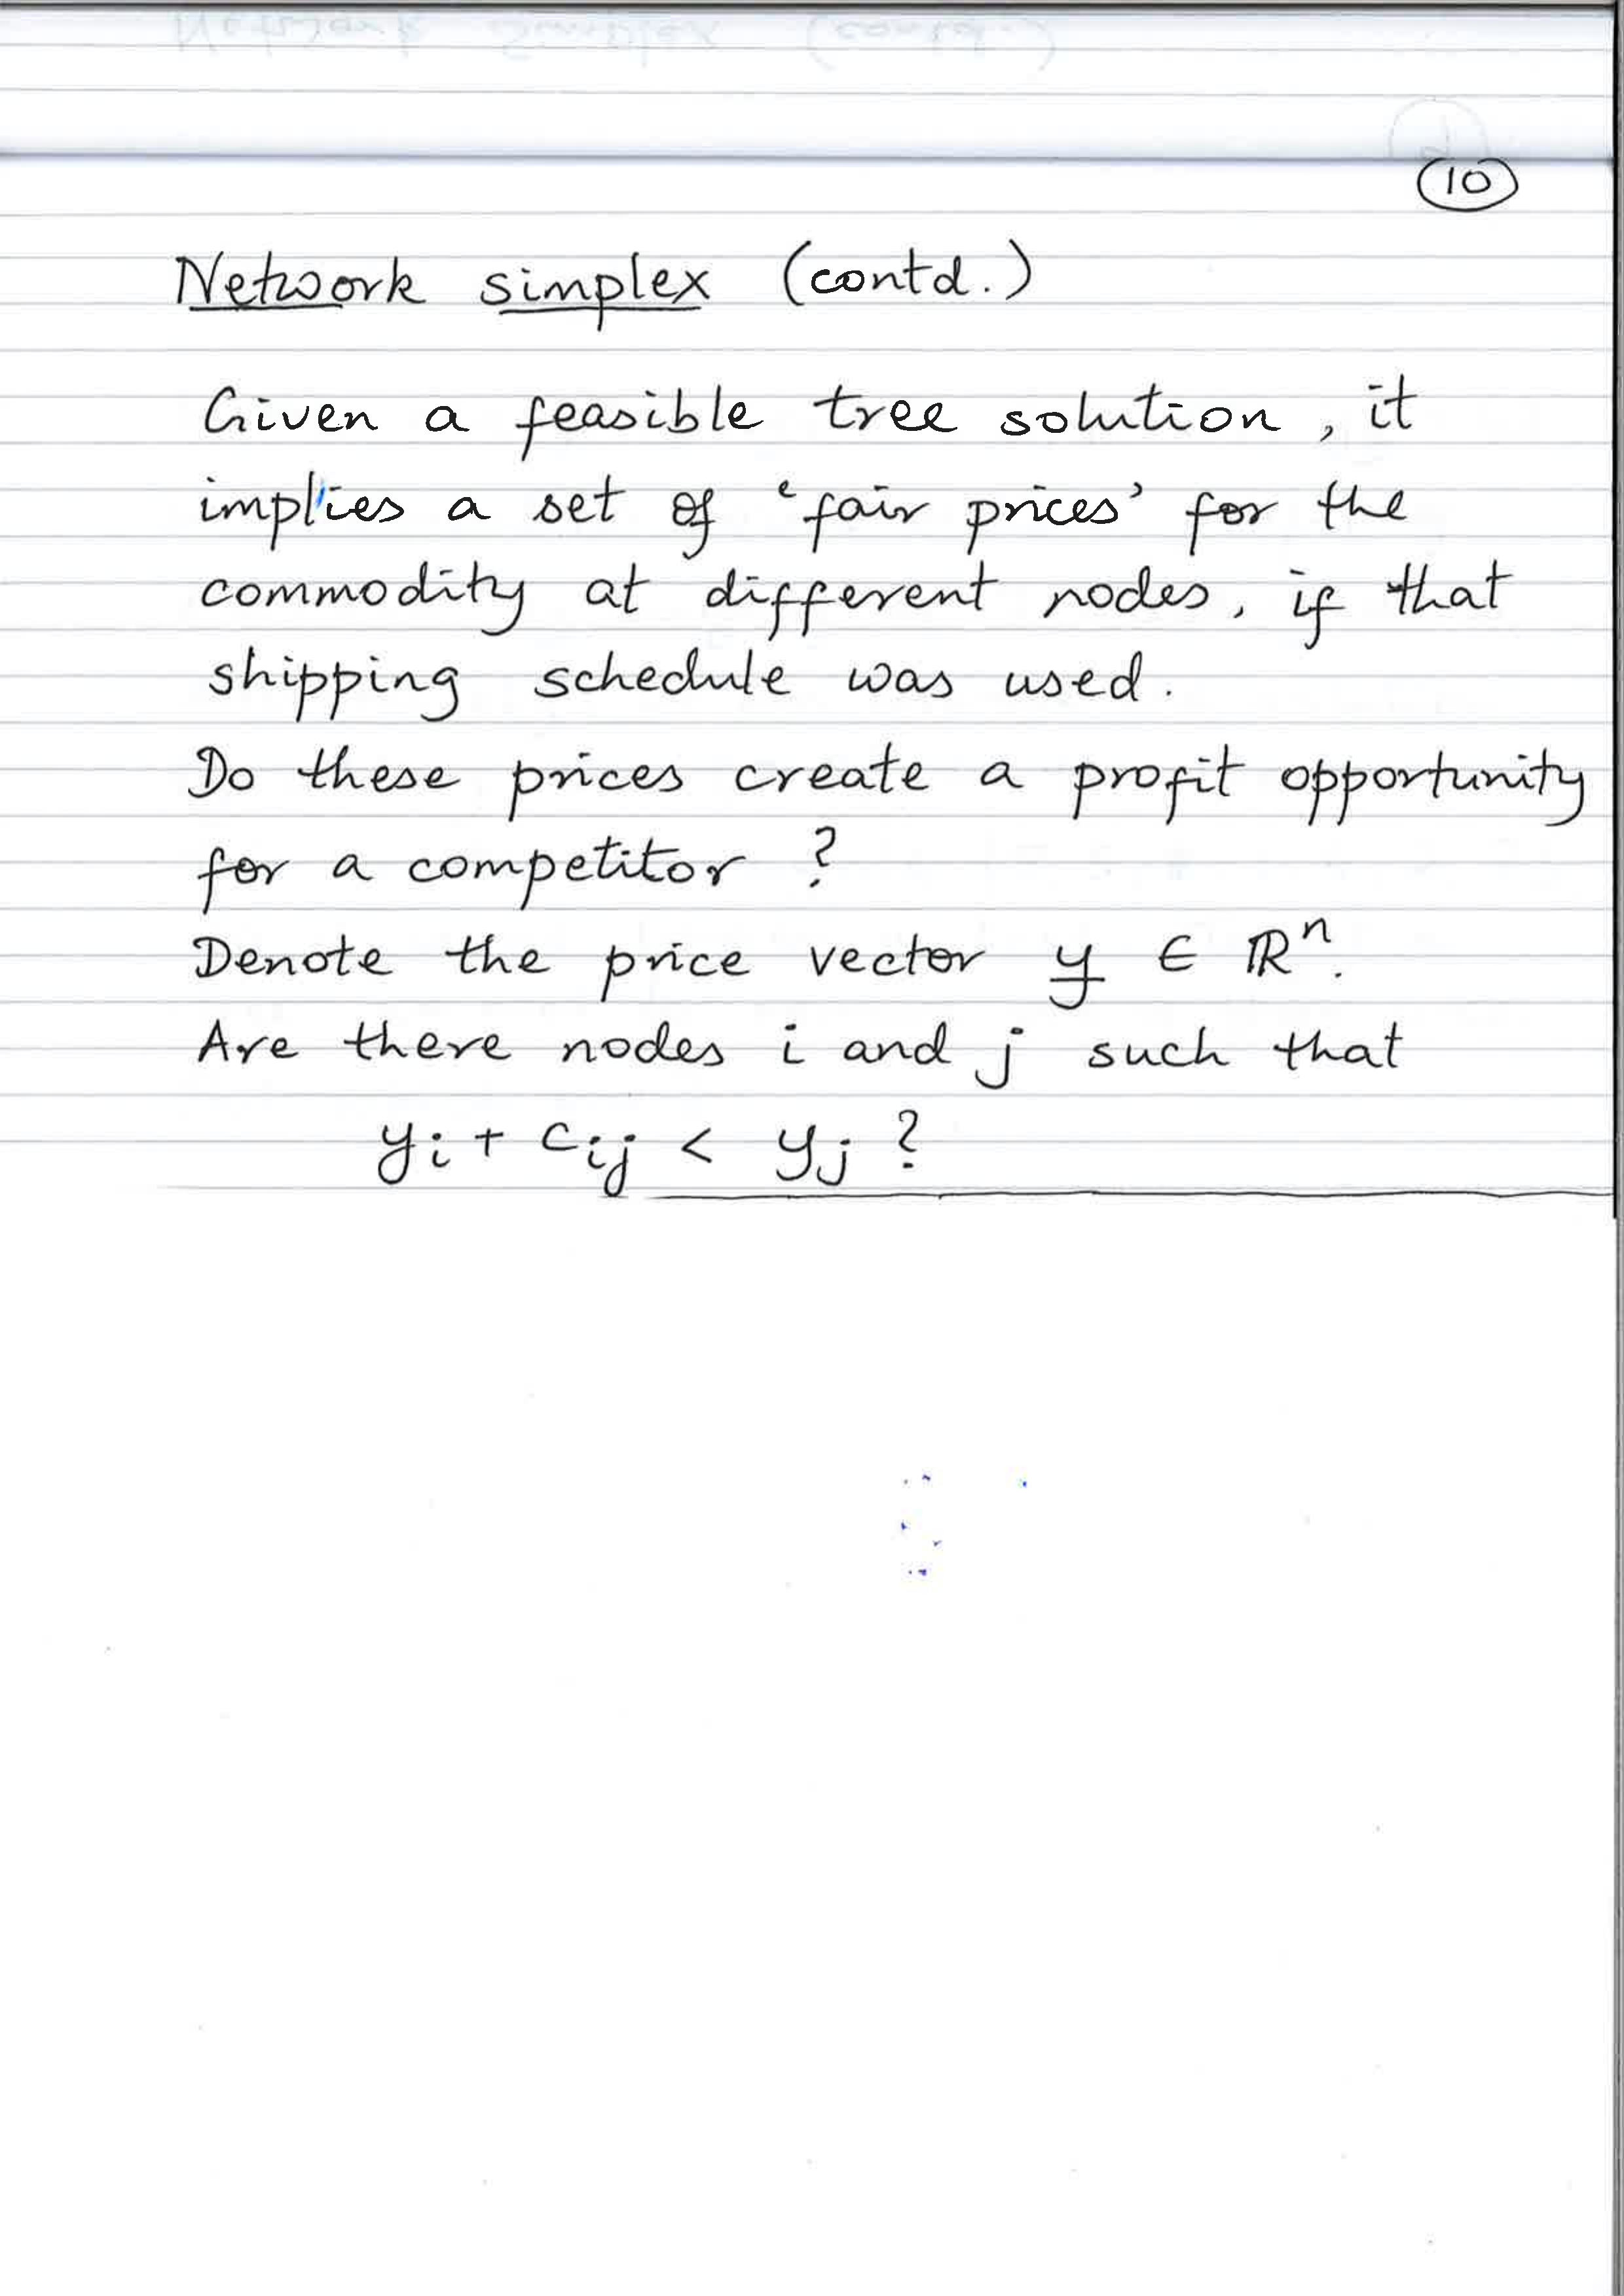 10
Network simplex (contd.)
Given a feasible tree solution, it
implies a set of 'fair prices' for the
commodity at different nodes, if that
shipping schedule was used.
Do these prices create a profit opportunity
for a competitor ?
Denote the price vector y ∈ ℝⁿ.
Are there nodes i and j such that
yᵢ + cᵢⱼ < yⱼ ?